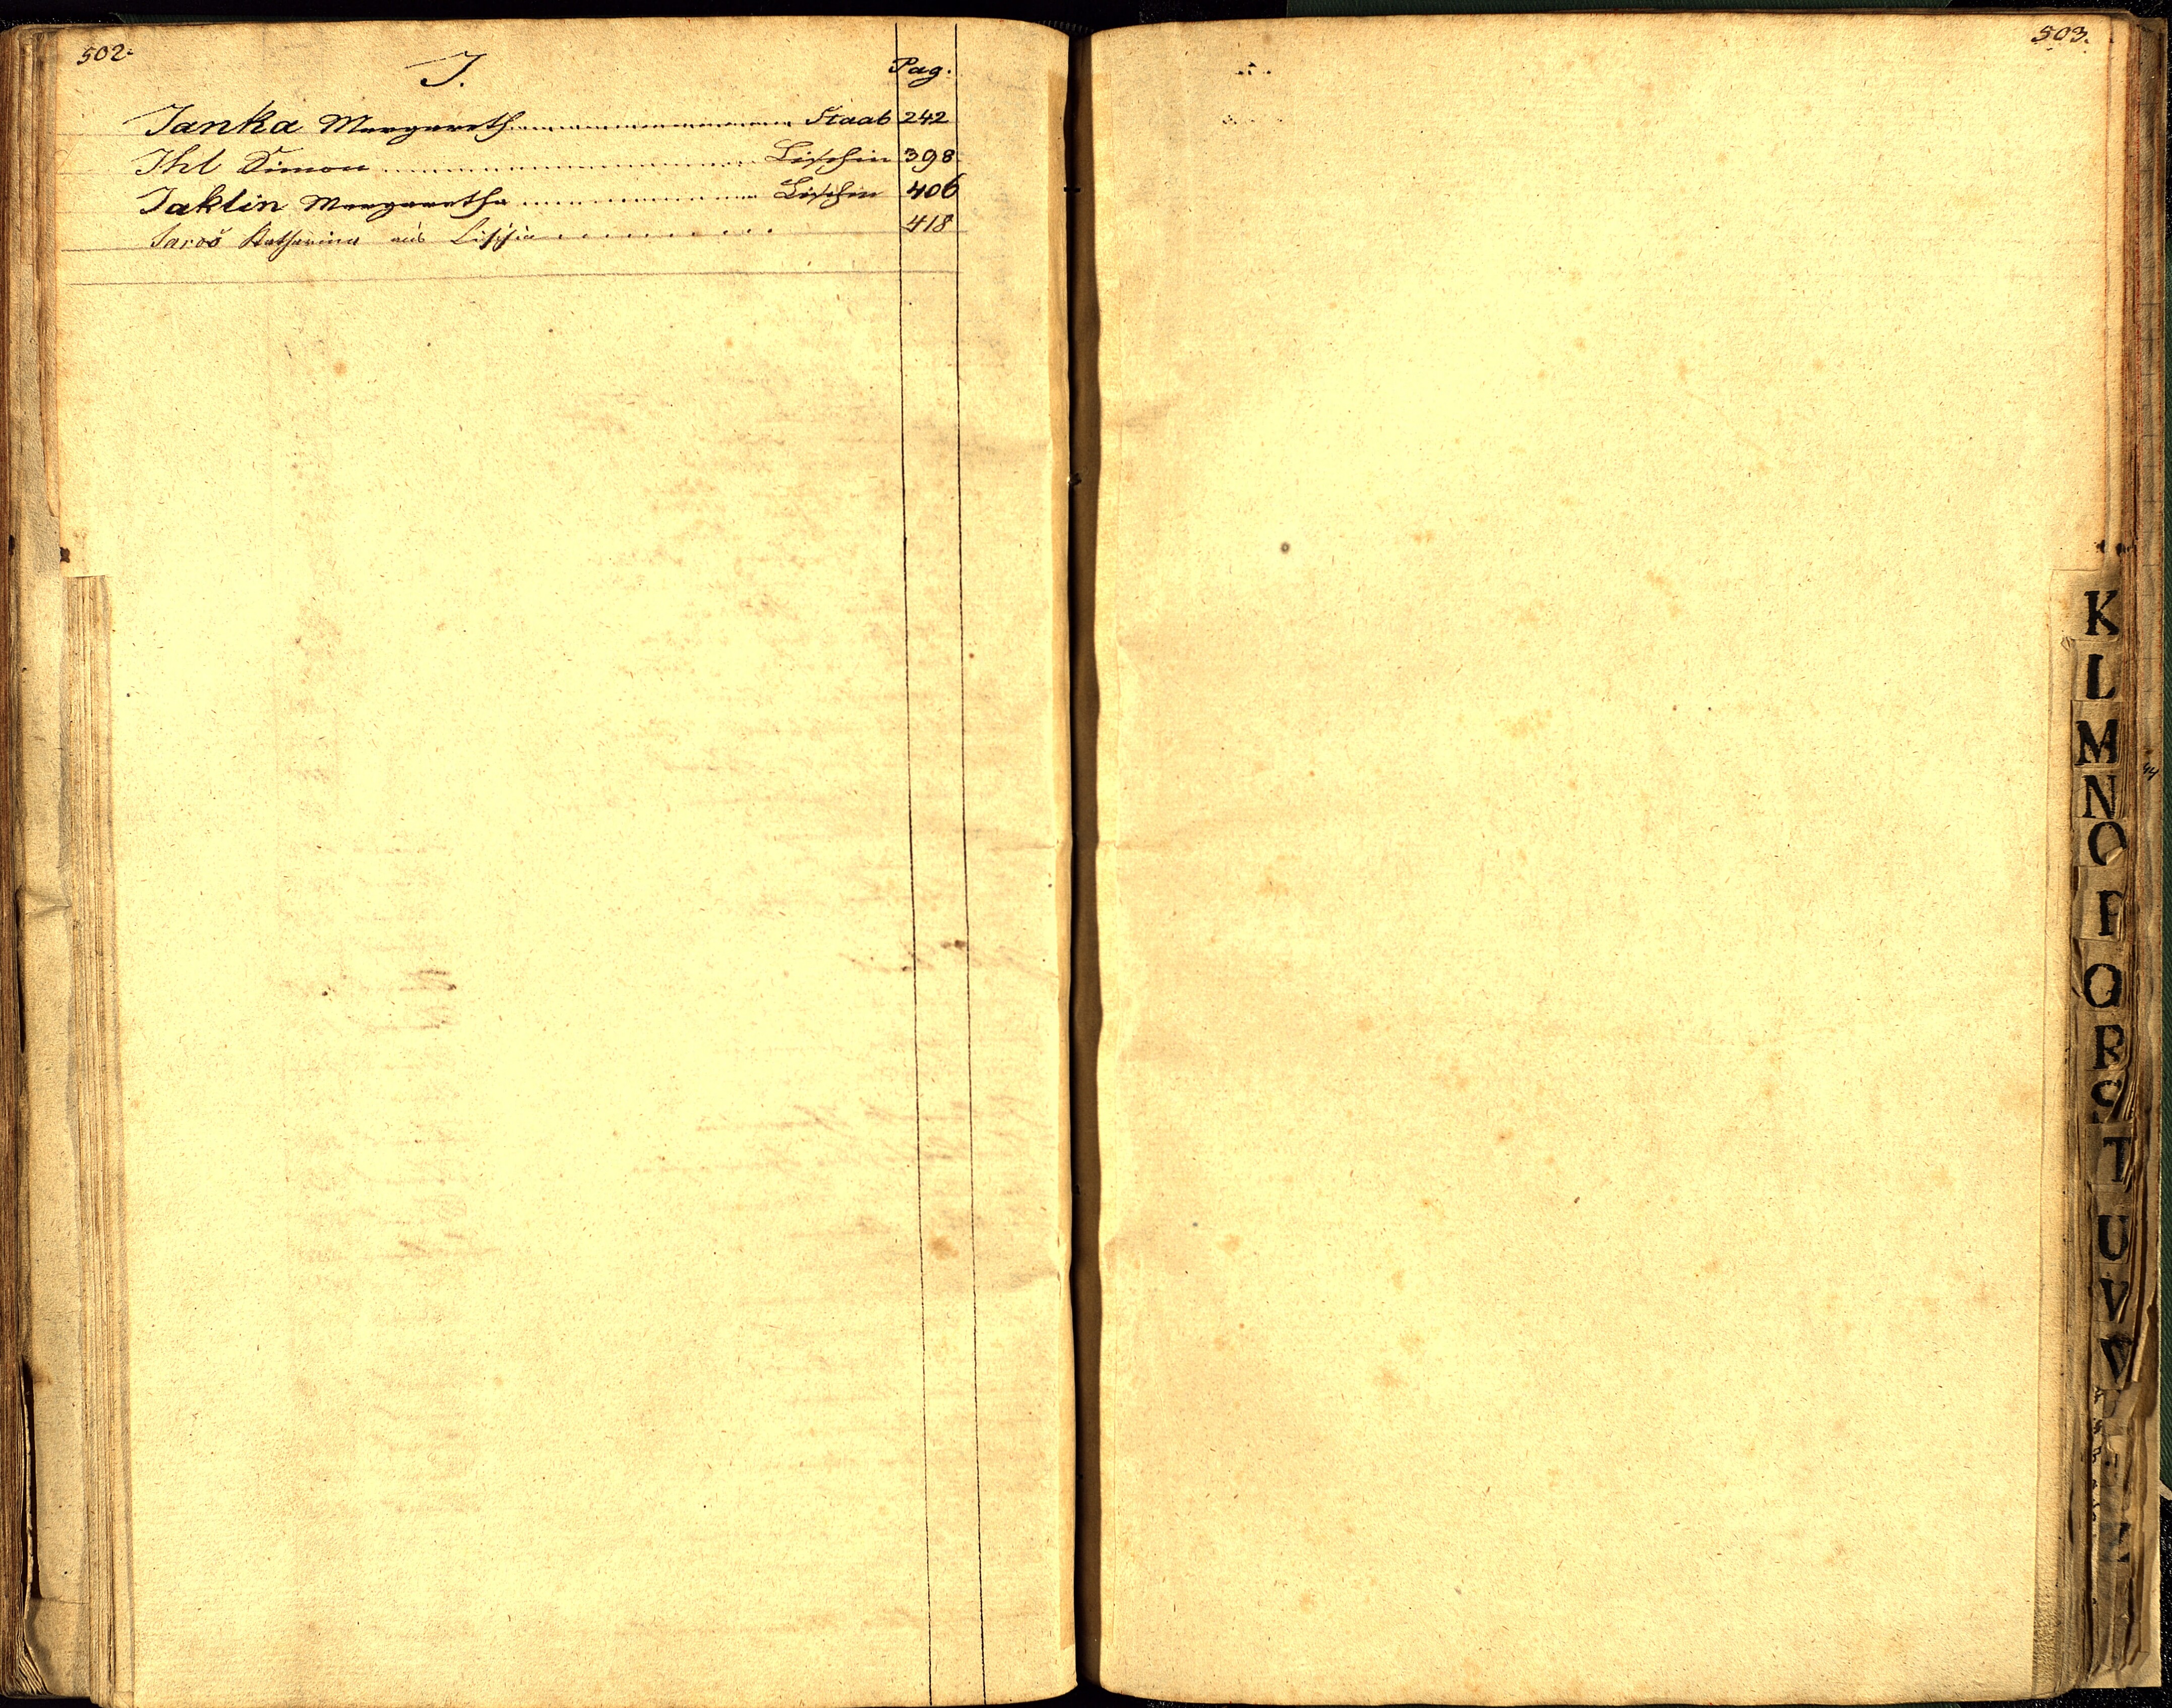 502.
I.
Pag.
Janka Margareth Staab 242
Ihl Simon Lischin 398
Jaklin Margaretha Lischin 406
Jaroš Katharina aus Lischin 418
503.
K
L
M
N
O
P
Q
R
S
T
U
V
W
Z